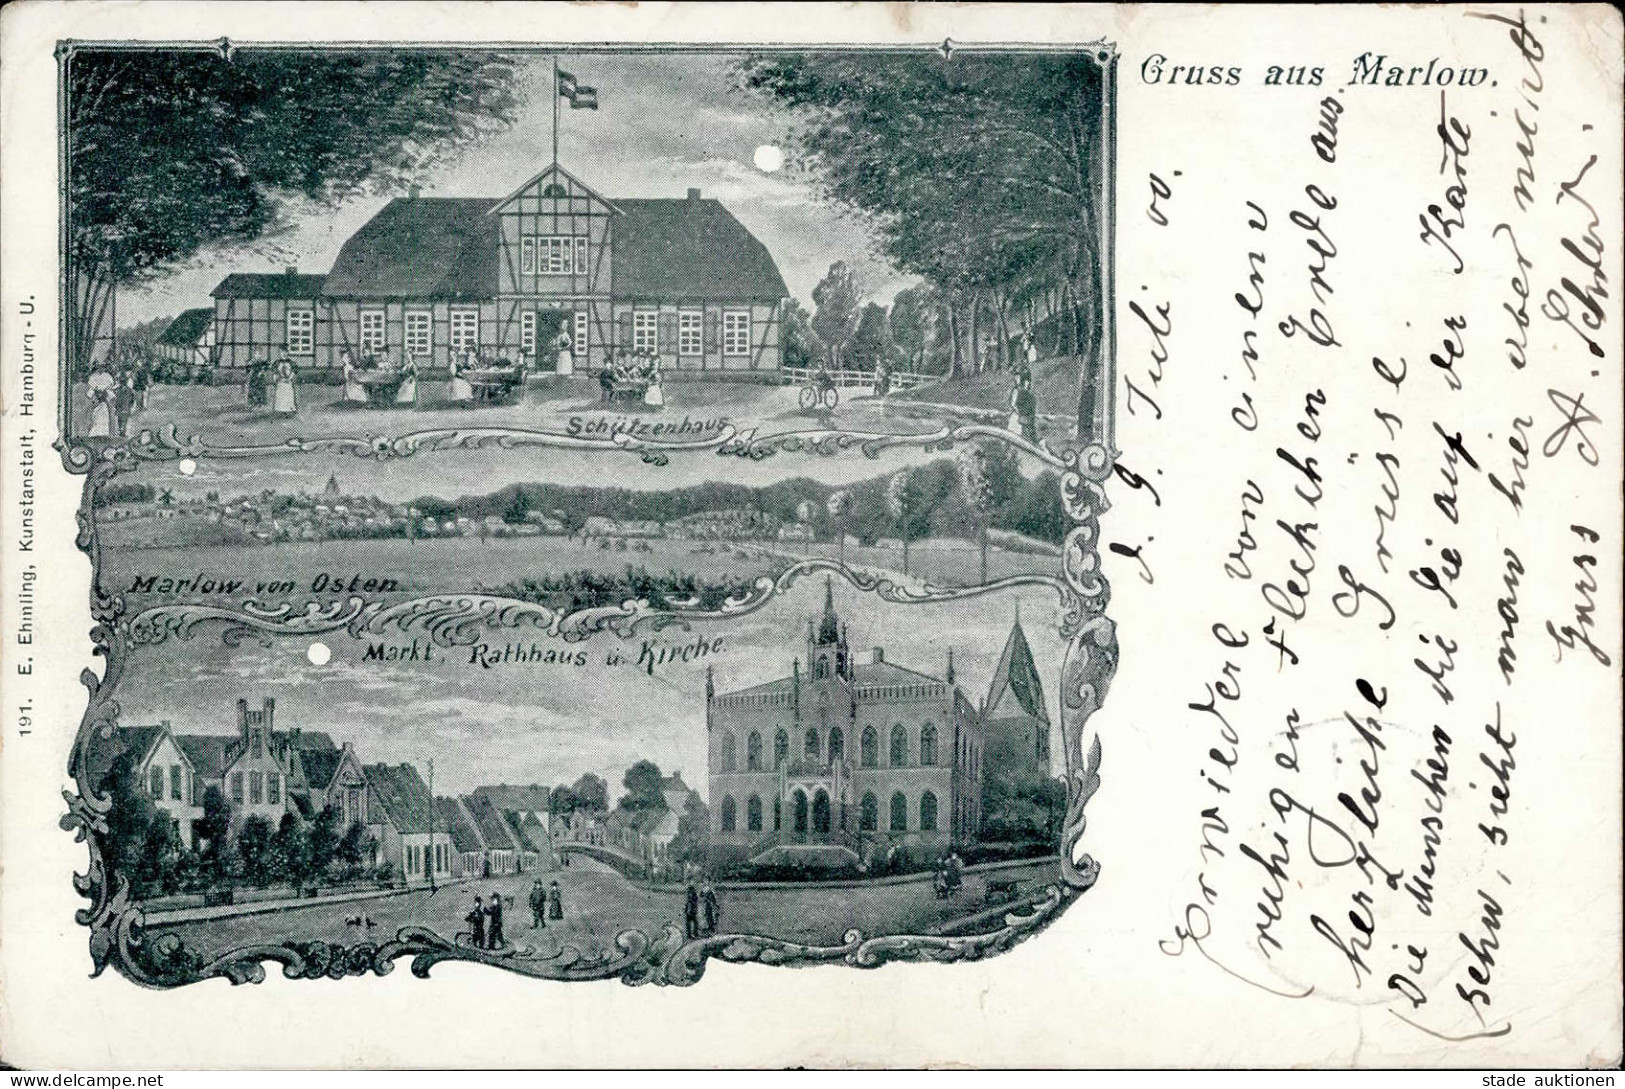 Gruss aus Marlow.
Schützenhaus
Marlow von Osten
Markt, Rathhaus u. Kirche.
191. E. Ehmling, Kunstanstalt, Hamburg-U.
d. 9. Juli 00.
Erwiedere von einem
ruhigen Fleckchen Erde aus.
herzliche Grüsse
Die Menschen die Sie auf der Karte
sehn, sieht man hier aber nicht.
Gruss
stade auktionen